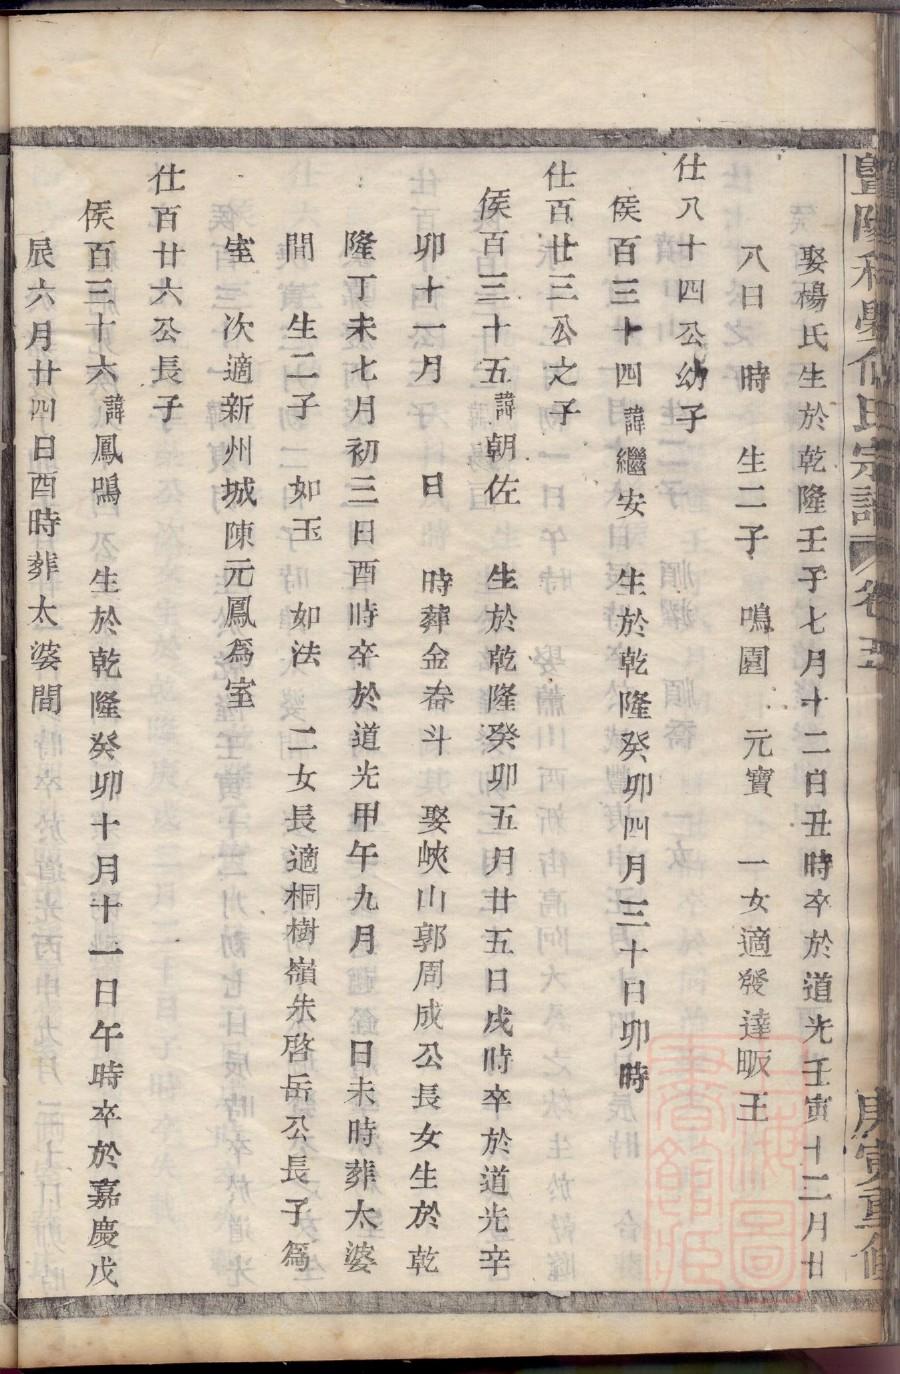 娶楊氏生於乾隆壬子七月十二日丑時卒於道光壬寅十二月廿
八日　時　生二子　鳴園　元寶　一女適發達畈王
仕八十四公幼子
侯百三十四諱繼安　生於乾隆癸卯四月三十日卯時
仕百廿三公之子
侯百三十五諱朝佐　生於乾隆癸卯五月廿五日戌時卒於道光辛
卯十一月　日　時葬金畚斗　娶峽山郭周成公長女生於乾
隆丁未七月初三日酉時卒於道光甲午九月　日未時葬太婆
間　生二子　如玉　如法　二女長適桐樹嶺朱啓岳公長子爲
室　次適新州城陳元鳳爲室
仕百廿六公長子
侯百三十六諱鳳鳴　生於乾隆癸卯十月十一日午時卒於嘉慶戊
辰六月廿四日酉時葬太婆間